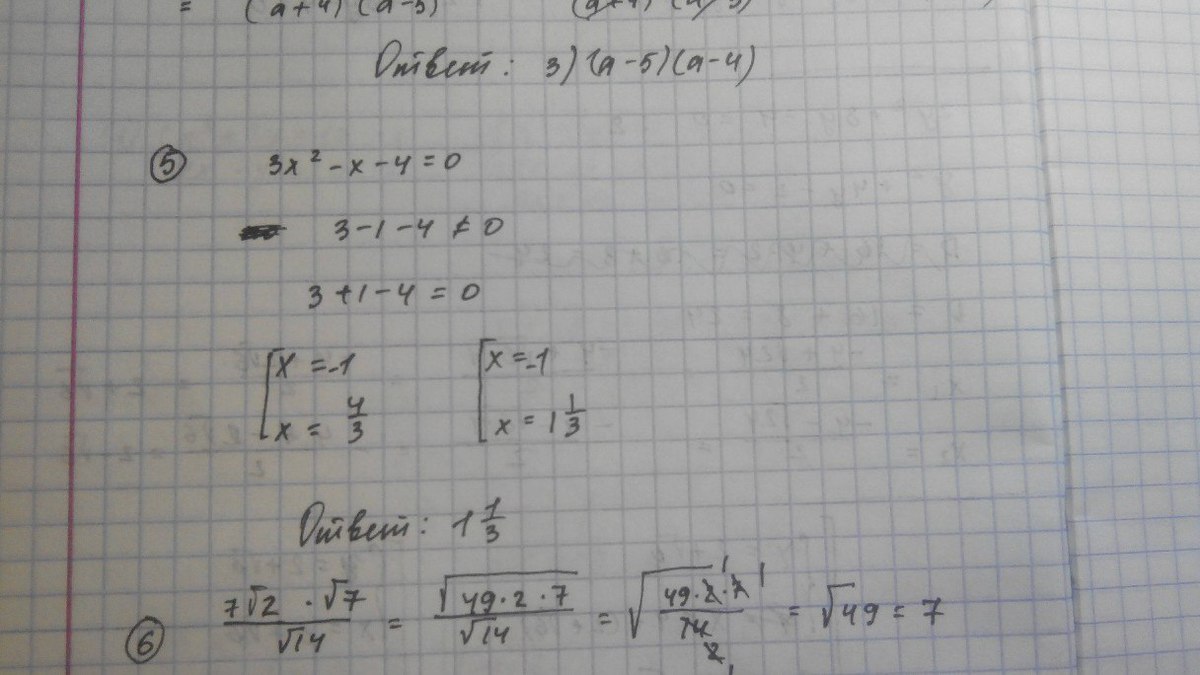 = (a+4)(a-5) (a+4)(a-5)
Ответ: 3) (a-5)(a-4)
5 3x² - x - 4 = 0
3 - 1 - 4 ≠ 0
3 + 1 - 4 = 0
[x = -1 [x = -1
x = 4/3 x = 1 1/3
Ответ: 1 1/3
6 7√2 · √7 / √14 = √(49·2·7) / √14 = √(49·2·7 / 14) = √49 = 7